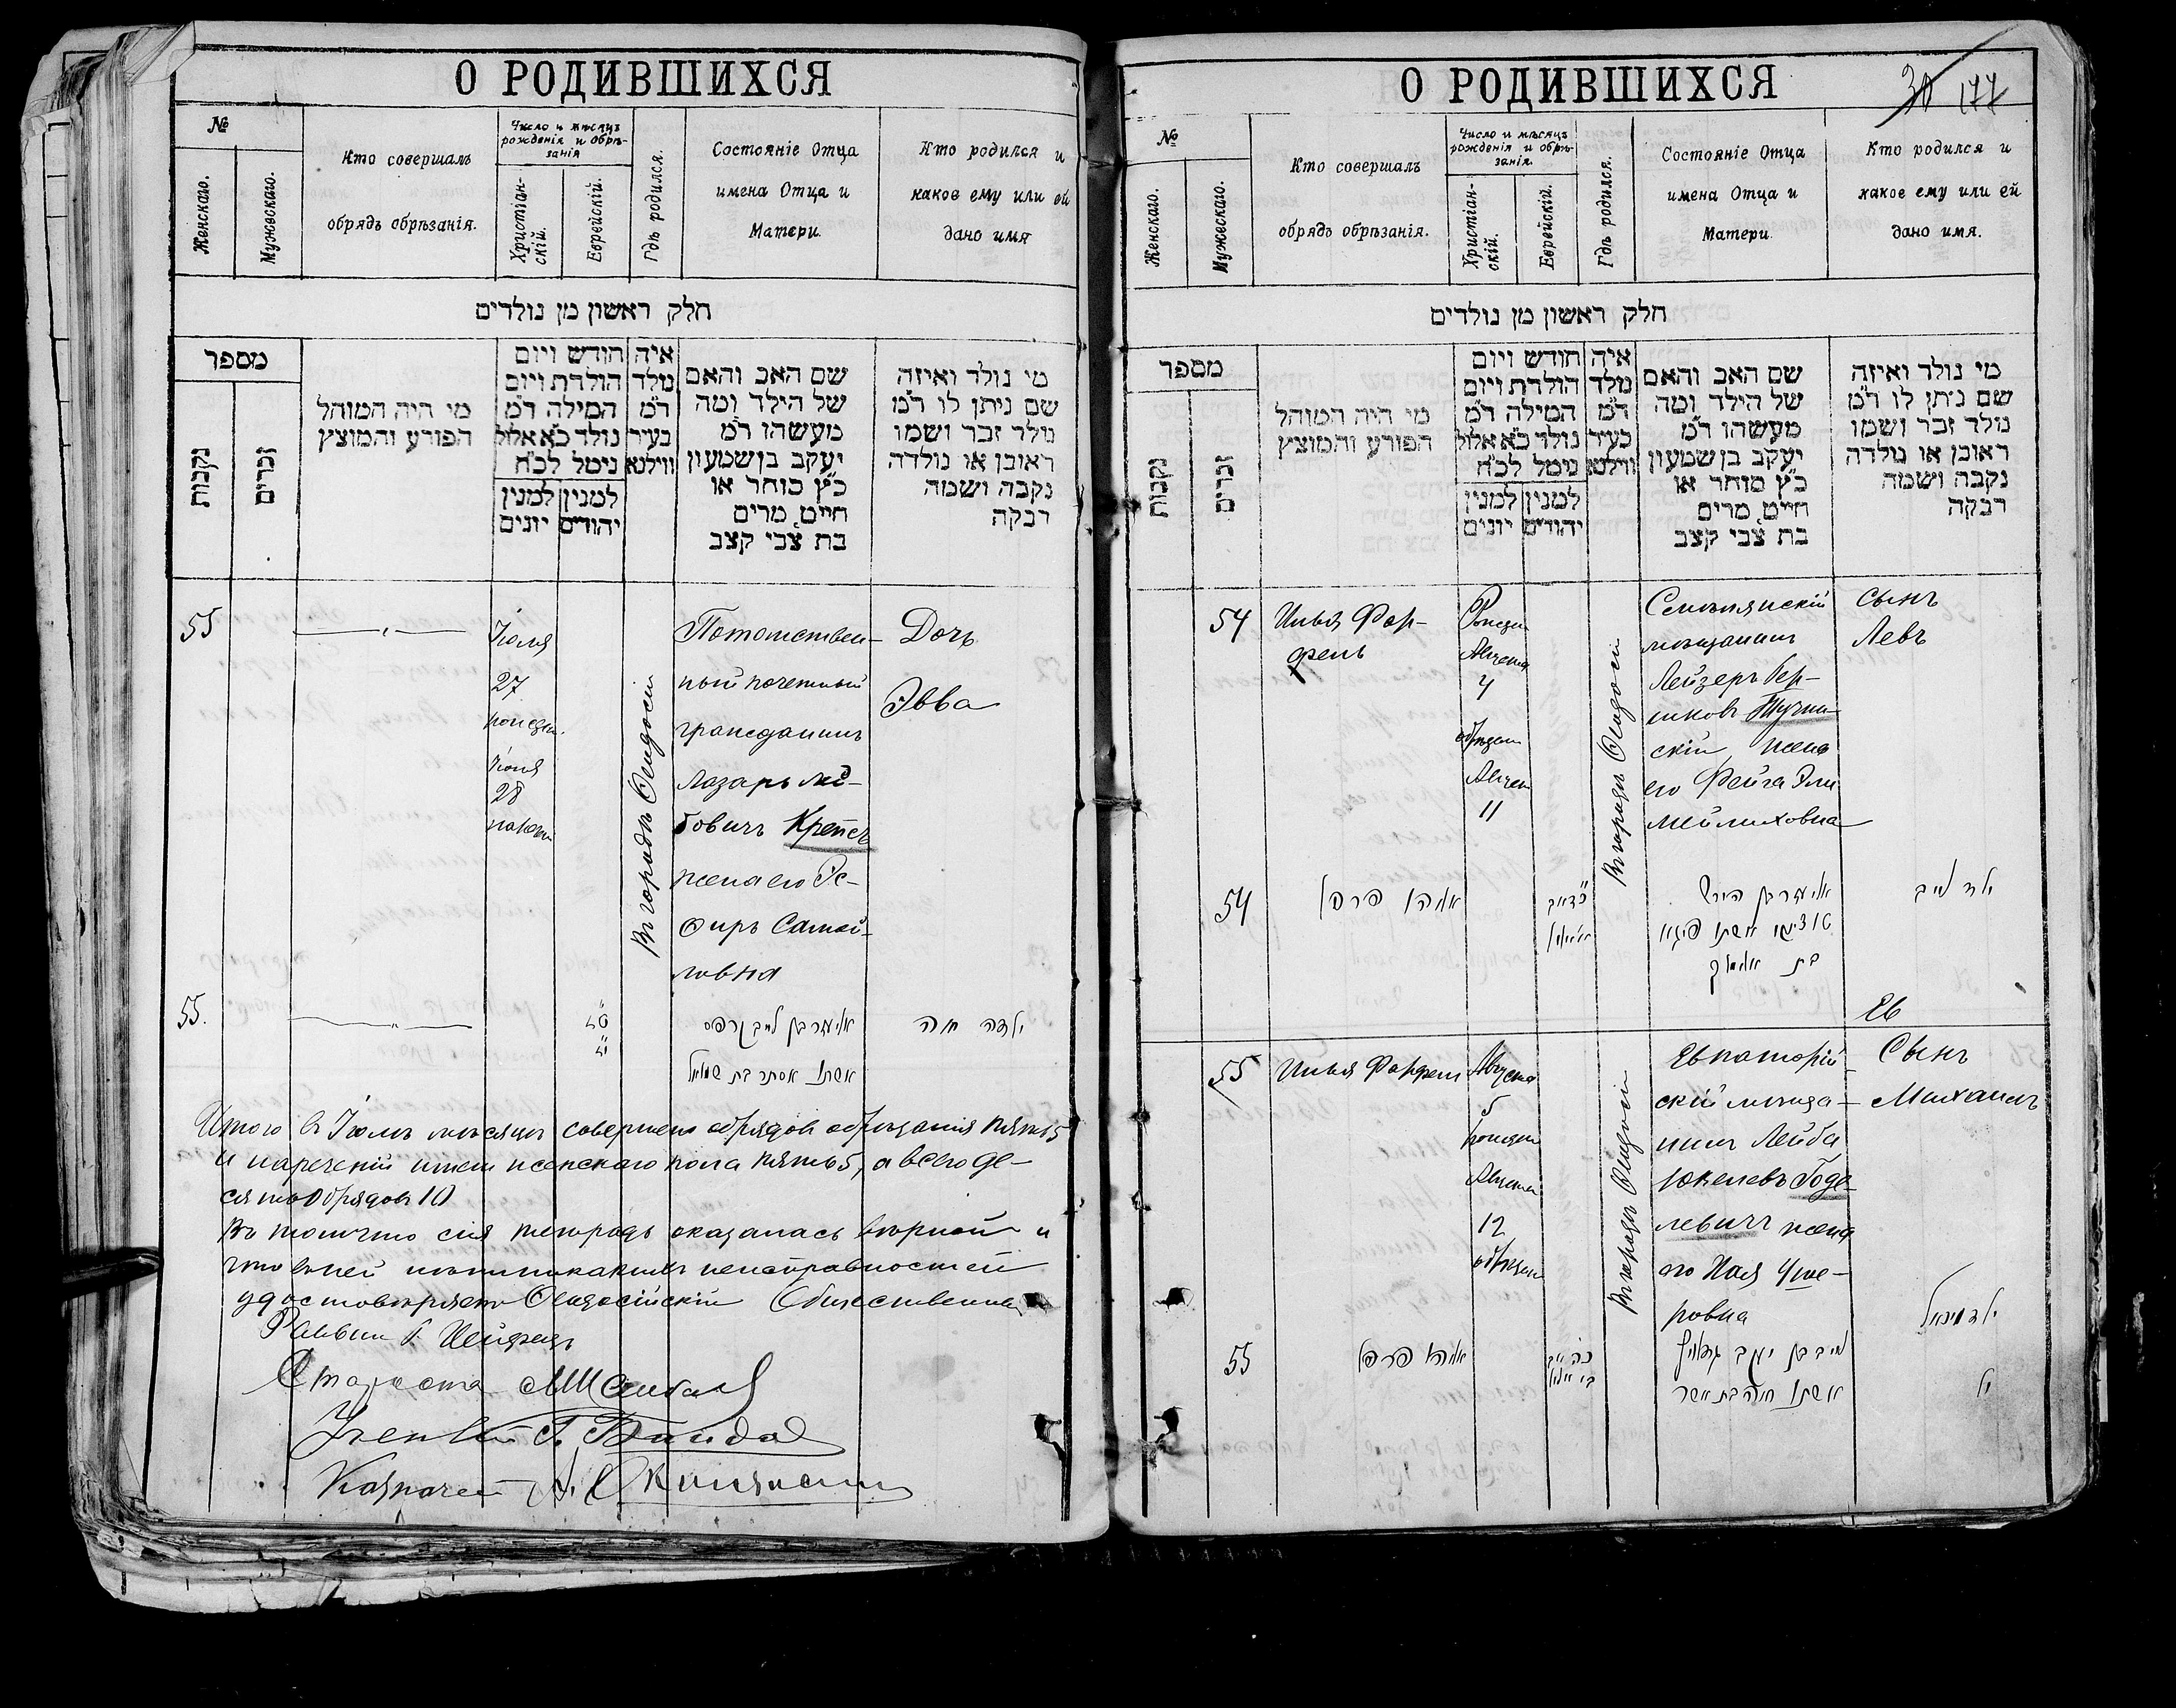 О РОДИВШИХСЯ
№
Женскаго.
Мужескаго.
Кто совершалъ
обрядъ обрѣзанія.
Число и мѣсяцъ
рожденія и обрѣ-
занія
Христіан-
скій.
Еврейскій.
Гдѣ родился.
Состояніе Отца
имена Отца и
Матери.
Кто родился и
какое ему или ей
дано имя
חלק ראשון מן נולדים
מספר
נקבות
זכרים
מי היה המוהל
הפורע והמוצץ
חודש ויום
הולדת ויום
המילה ד״מ
נולד כ״א אלול
נימל לכ״ח
למנין
יהודים
למנין
יונים
איה
נולד
ד״מ
בעיר
ווילנא
שם האב והאם
של הילד ומה
מעשהו ד״מ
יעקב בן שמעון
כ״ץ סוחר או
חייט, מרים
בת צבי קצב
מי נולד ואיזה
שם ניתן לו ד״מ
נולד זכר ושמו
ראובן או נולדה
נקבה ושמה
רבקה
55
Іюля
27
рожден.
Іюля
28
нареч.
Въ городѣ Ѳеодосіи
Потомствен-
ный почетный
гражданинъ
Лазарь Лей-
бовичъ Крепсъ
жена его Эс-
ѳирь Самой-
ловна
Дочь
Эвва
55.
אליעזר בן לייב קרפס
אשתו אסתר בת שמואל
ילדה חוה
Итого въ Іюлѣ мѣсяцѣ совершено обрядовъ обрѣзанія пять 5
и нареченій имени женскаго пола пять 5, а всего де-
сять обрядовъ 10
Въ томъ что сія тетрадь оказалась вѣрной и
что въ ней нѣтъ никакихъ неисправностей
удостовѣряетъ Ѳеодосійскій Общественный
Раввинъ
Староста
Казначей
О РОДИВШИХСЯ
30 177
№
Женскаго.
Мужескаго.
Кто совершалъ
обрядъ обрѣзанія.
Число и мѣсяцъ
рожденія и обрѣ-
занія.
Христіан-
скій.
Еврейскій.
Гдѣ родился.
Состояніе Отца
имена Отца и
Матери.
Кто родился и
какое ему или ей
дано имя.
חלק ראשון מן נולדים
מספר
נקבות
זכרים
מי היה המוהל
הפורע והמוצץ
חודש ויום
הולדת ויום
המילה ד״מ
נולד כ״א אלול
נימל לכ״ח
למנין
יהודים
למנין
יונים
איה
נולד
ד״מ
בעיר
ווילנא
שם האב והאם
של הילד ומה
מעשהו ד״מ
יעקב בן שמעון
כ״ץ סוחר או
חייט, מרים
בת צבי קצב
מי נולד ואיזה
שם ניתן לו ד״מ
נולד זכר ושמו
ראובן או נולדה
נקבה ושמה
רבקה
54
Илья Фар-
фель
Рожден
Августа
4
обрѣзан
Август
11
Въ городѣ Ѳеодосіи
мѣщанинъ
Лейзеръ Гер-
шковъ Тучин-
скій жена
его Фейга Эли-
мейлиховна
Сынъ
Левъ
54
אליהו פרפל
אליעזר בן הירש
אשתו פיגא
בת אלימלך
ילד לייב
Ев
55
Илья Фарфель
Августа
5
рожден
Августа
12
обрѣзан
Въ городѣ Ѳеодосіи
Евпаторій-
скій мѣща-
нинъ Лейба
Юкелевъ Годе-
левичъ жена
его Хая Уше-
ровна
Сынъ
Михаилъ
55
אליהו פרפל
לייב בן יעקב
אשתו חיה בת אשר
ילד מיכאל